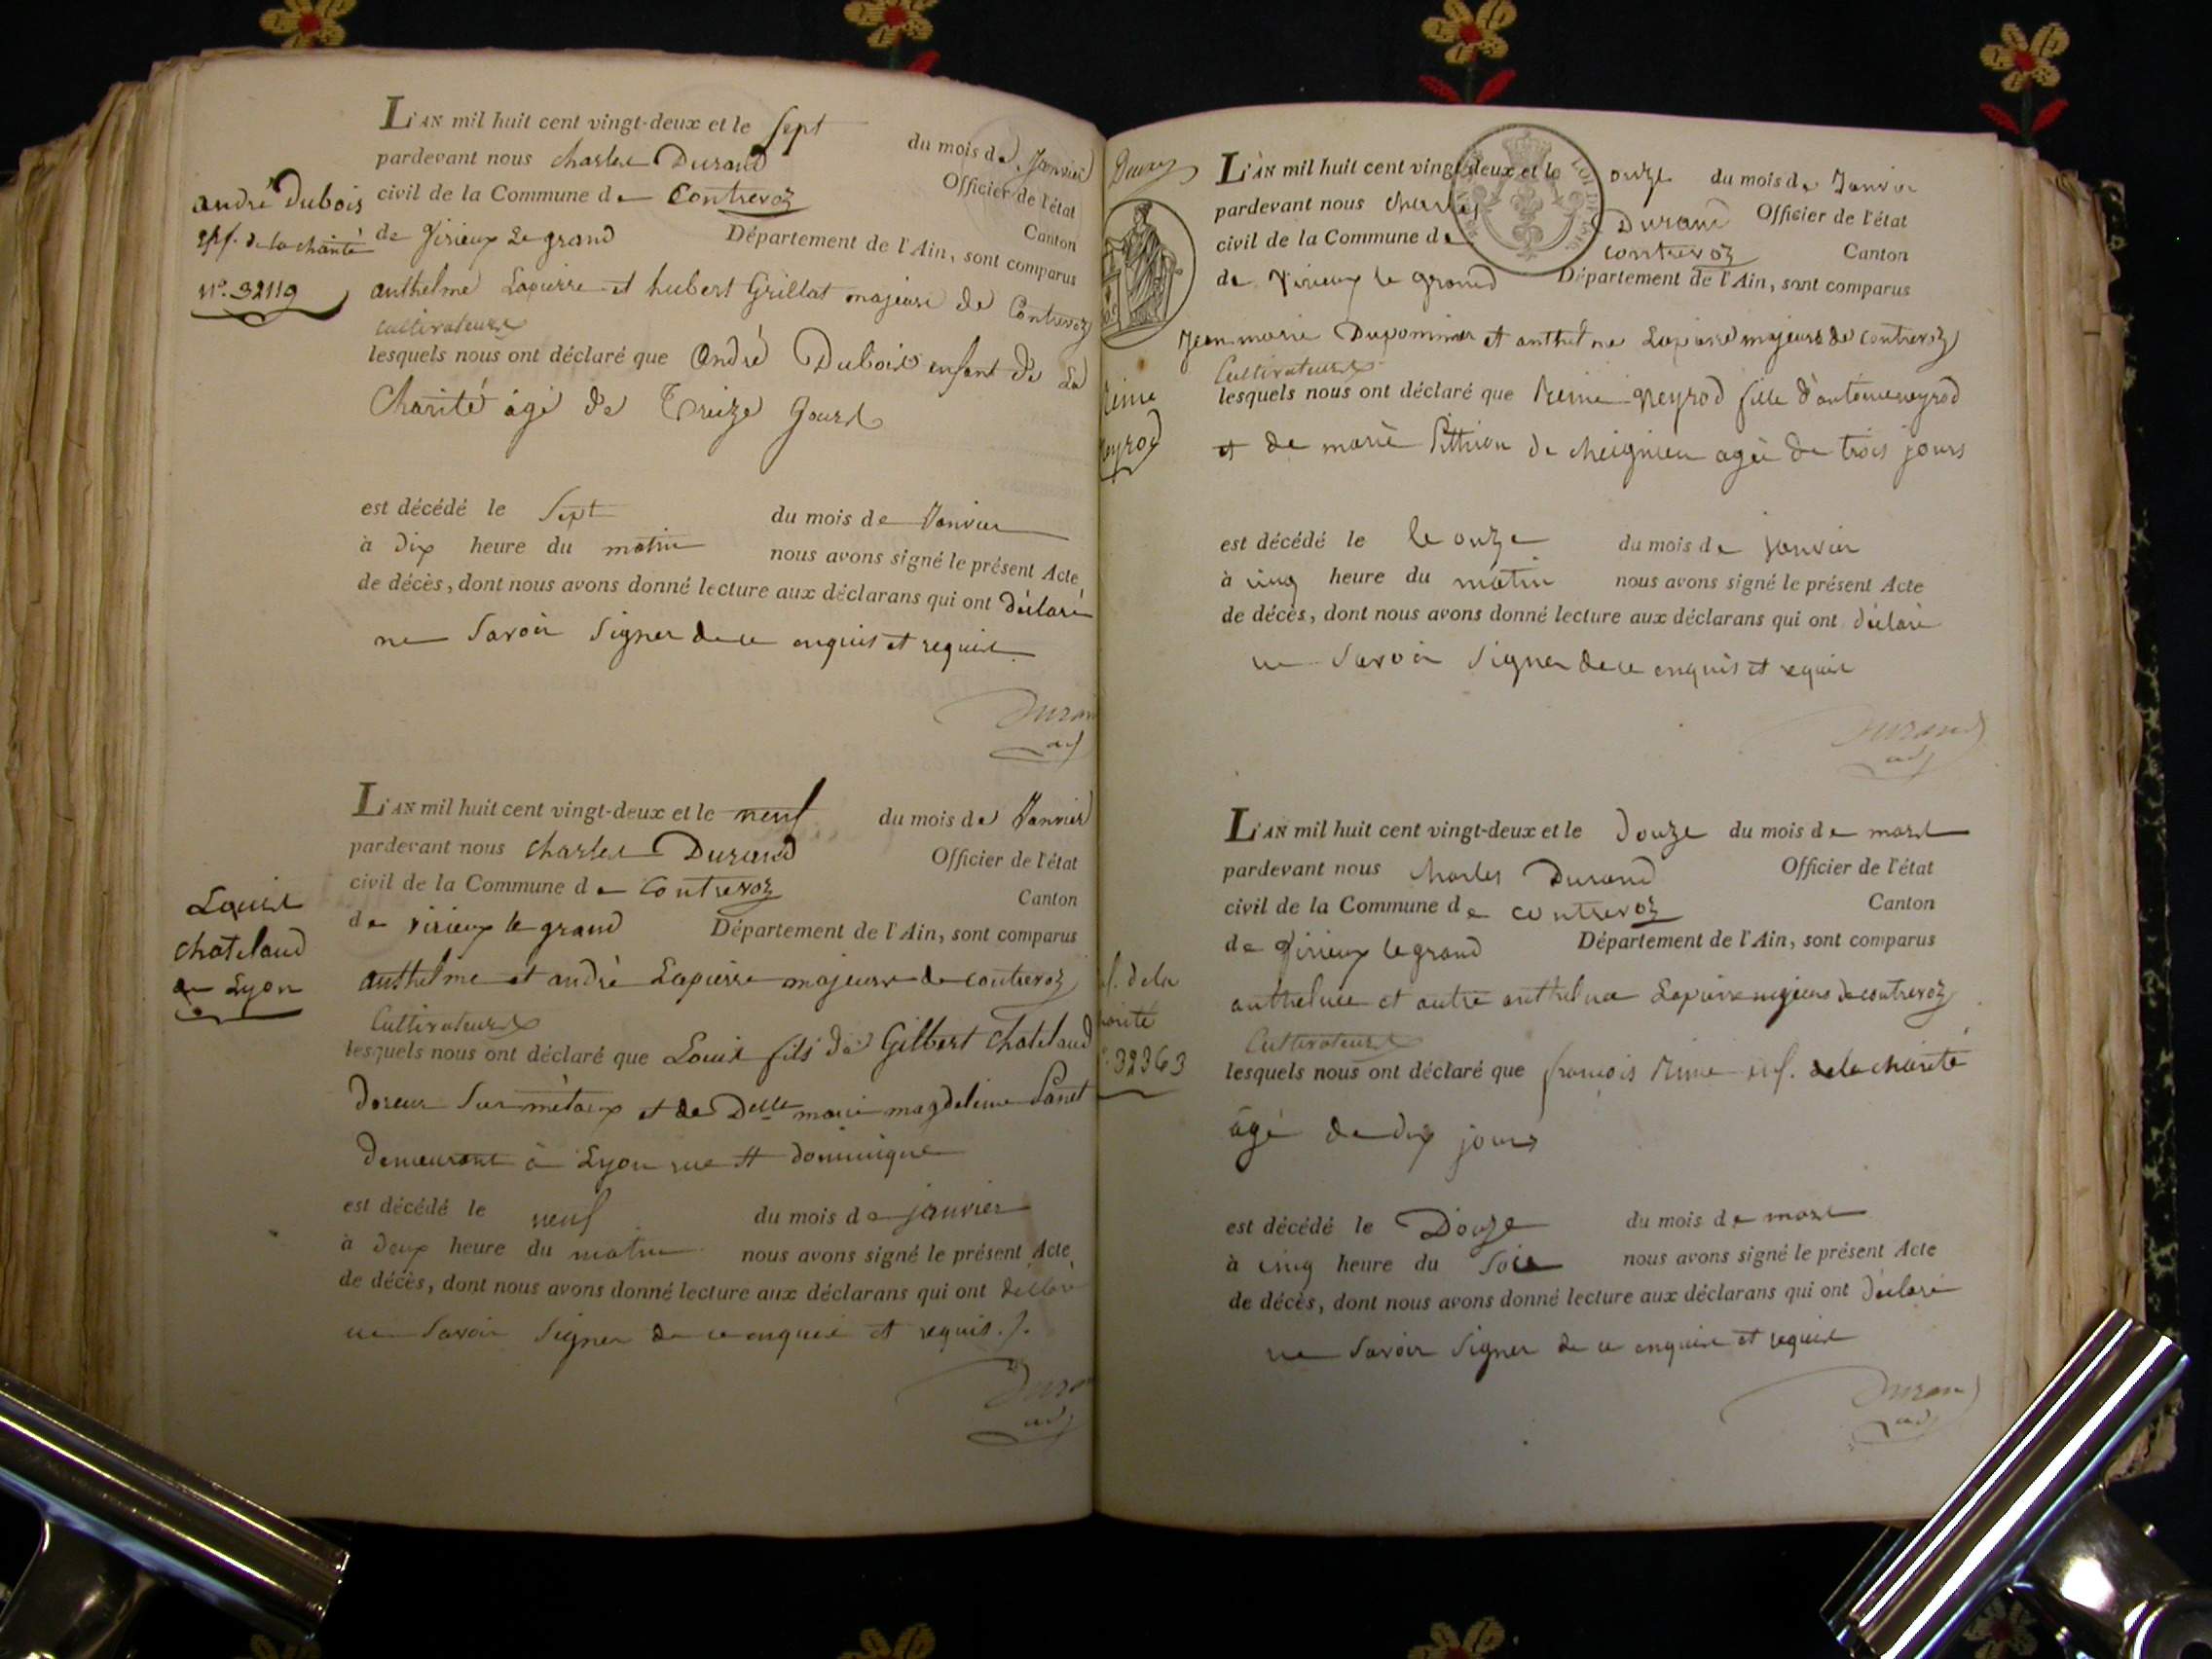 L'AN mil huit cent vingt-deux et le sept du mois de Janvier
pardevant nous charles Durand Officier de l'état
civil de la Commune de Contrevoz Canton
de Virieux Le grand Département de l'Ain, sont comparus
anthelme Lapierre et hubert Grillat majeurs de Contrevoz
cultivateurs
lesquels nous ont déclaré que André Dubois enfant de La
Charité âgé de Treize Jours
est décédé le Sept du mois de Janvier
à dix heure du matin nous avons signé le présent Acte
de décès, dont nous avons donné lecture aux déclarans qui ont déclaré
ne Savoir Signer de ce enquis et requis
Durand
André Dubois
de la charité
N°. 32119
L'AN mil huit cent vingt-deux et le neuf du mois de Janvier
pardevant nous charles Durand Officier de l'état
civil de la Commune de Contrevoz Canton
de virieux le grand Département de l'Ain, sont comparus
anthelme et andré Lapierre majeurs de contrevoz
Cultivateurs
lesquels nous ont déclaré que Louis fils de Gilbert Chatelaud
doreur Sur métaux et de Delle marie magdeleine Panet
demeurant à Lyon rue St dominique
est décédé le neuf du mois de janvier
à deux heure du matin nous avons signé le présent Acte
de décès, dont nous avons donné lecture aux déclarans qui ont déclaré
ne Savoir Signer de ce enquis et requis
Louis
chatelaud
de Lyon
L'AN mil huit cent vingt deux et le onze du mois de Janvier
pardevant nous charles Durand Officier de l'état
civil de la Commune de contrevoz Canton
de Virieux le grand Département de l'Ain, sont comparus
Jean marie et anthelme Lapierre majeurs de contrevoz
Cultivateurs
lesquels nous ont déclaré que Reine Neyrod fille d'antoine neyrod
et de marie Pithion de cheignieu agée de trois jours
est décédé le le onze du mois de janvier
à cinq heure du matin nous avons signé le présent Acte
de décès, dont nous avons donné lecture aux déclarans qui ont déclaré
ne Savoir Signer de ce enquis et requis
Durand
L'AN mil huit cent vingt-deux et le douze du mois de mars
pardevant nous charles Durand Officier de l'état
civil de la Commune de contrevoz Canton
de Virieux le grand Département de l'Ain, sont comparus
anthelme et autre anthelme Lapierre majeurs de contrevoz
Cultivateurs
lesquels nous ont déclaré que françois Rime enf. de la charité
âgé de dix jours
est décédé le Douze du mois de mars
à cinq heure du Soir nous avons signé le présent Acte
de décès, dont nous avons donné lecture aux déclarans qui ont déclaré
ne Savoir Signer de ce enquis et requis
Durand
32363